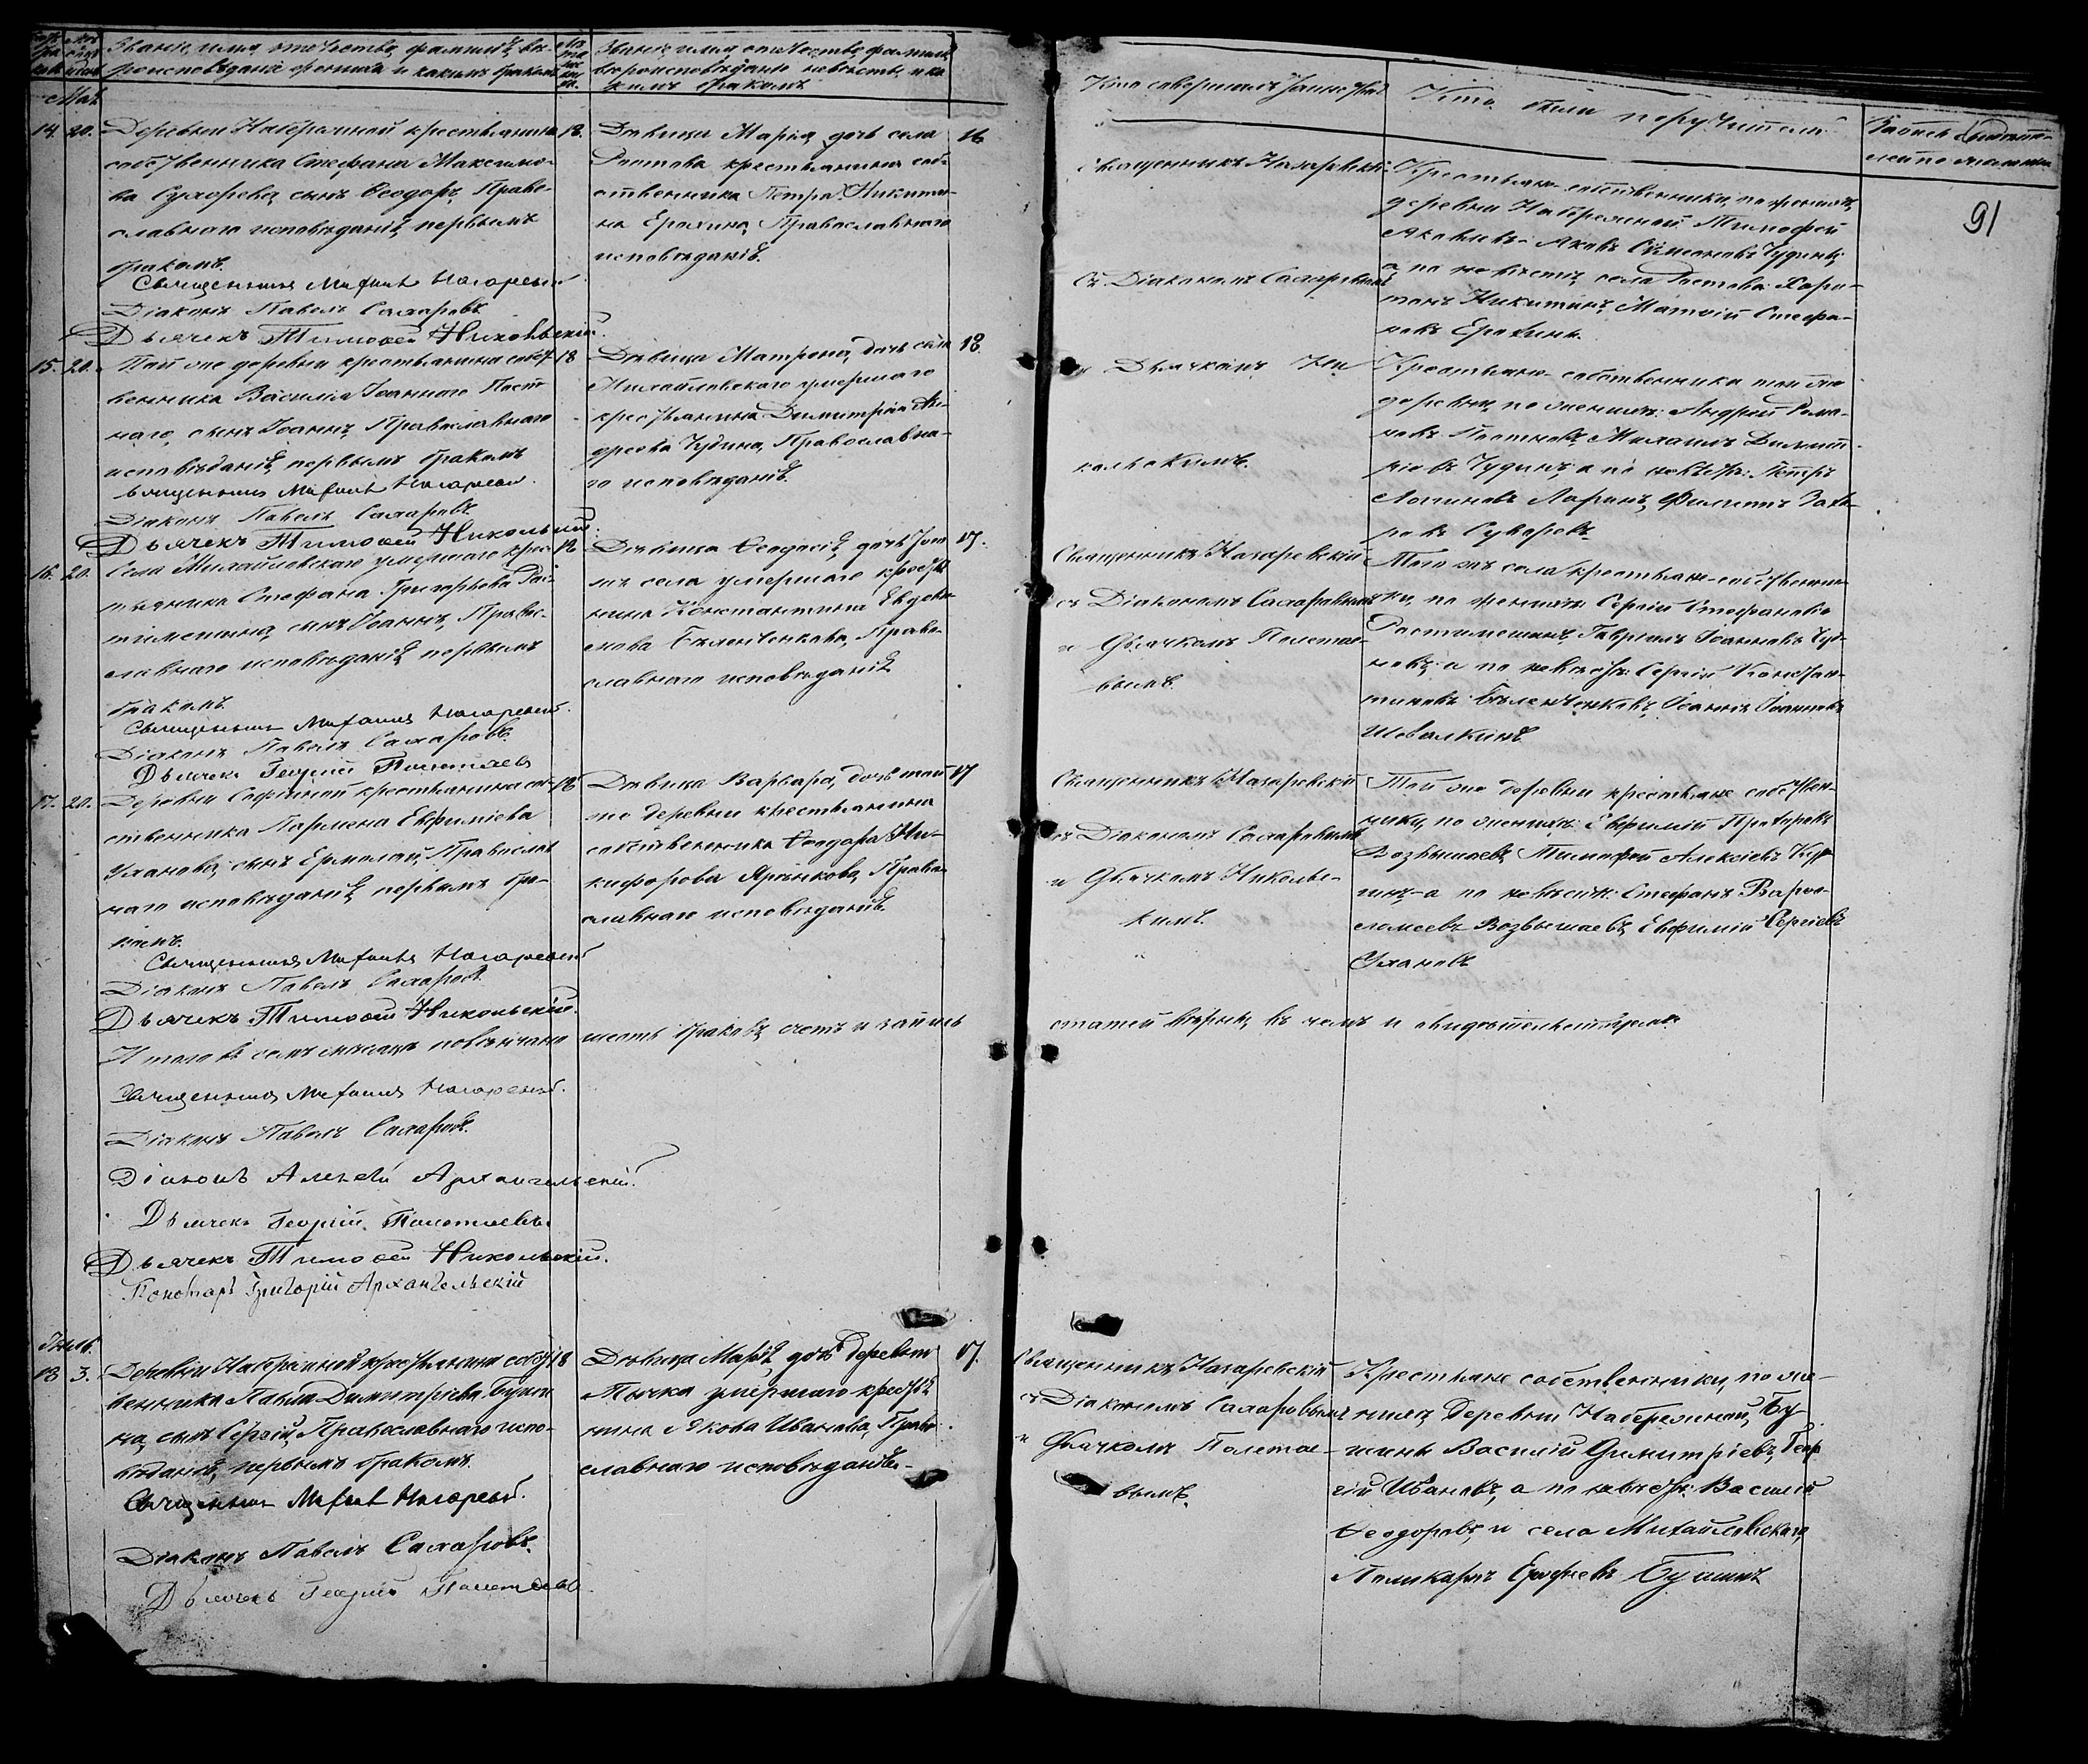 Званіе, имя, отчество, фамилія, вѣ-
роисповѣданіе жениха и какимъ бракомъ
Званіе имя отчество фамилія
вѣроисповѣданіе невѣсты и ка
кимъ бракомъ
Кто совершалъ таинство
Кто были поручители
91
Май
14. 20.
Деревни Набережной крестьянина
собственника Стефана Максимо-
ва Сухорева, сынъ Ѳеодоръ, Право-
славнаго исповѣданія, первымъ
бракомъ.
Священникъ Михаилъ Назаревскій
Діаконъ Павелъ Сахаровъ
Дьячекъ Тимоѳей Никольскій
18.
Дѣвица Марія, дочь села
Ростова крестьянина соб-
ственника Петра Никити-
на Ерохина, Православнаго
исповѣданія.
16
Священникъ Назаревскій
Съ Діакономъ Сахаровымъ
Крестьяне-собственники, по женихѣ,
деревни Набережной Тимофей
Яковлевъ, Яковъ Симеоновъ Чудинъ;
а по невѣстѣ, села Ростова Хари-
тонъ Никитинъ, Матвій Стефа-
новъ Ерохинъ.
15. 20.
Той же деревни крестьянина собст
венника Василія Іоаннова Пост
наго, сынъ Іоаннъ, Православнаго
исповѣданія, первымъ бракомъ
Священникъ Михаилъ Назаревскій
Діаконъ Павелъ Сахаровъ
Дьячекъ Тимоѳей Никольскій
18
Дѣвица Матрона, дочь села
Михайловскаго умершаго
крестьянина Димитрія Ан-
дреева Чудина, Православна-
го исповѣданія.
18.
и Дьячкомъ Ни
кольскимъ.
Крестьяне-собственники той же
деревни, по женихѣ: Андрей Рома-
новъ Постновъ, Михаилъ Димит-
ріевъ Чудинъ, а по невѣстѣ: Петръ
Логиновъ Ларинъ, Филиппъ Заха-
ровъ Суворовъ
16. 20.
Села Михайловскаго умершаго крес-
тьянина Стефана Григорьева Рас-
тимешина, сынъ Іоаннъ, Право-
славнаго исповѣданія, первымъ
бракомъ
Священникъ Михаилъ Назаревскій.
Діаконъ Павелъ Сахаровъ.
Дьячекъ Георгій Полетаевъ
18
Дѣвица Ѳеодосія, дочь того
жъ села умершаго крестья
нина Константина Евдоки
мова Бѣленченкова, Право-
славнаго исповѣданія
17.
Священникъ Назаревскій
съ Діакономъ Сахаровымъ
и Дьячкомъ Полетае-
вымъ.
Того жъ села крестьяне-собственни-
ки, по женихѣ: Сергій Стефановъ
Растимешинъ, Гавріилъ Іоанновъ Чуд-
новъ; а по невѣстѣ: Сергій Констан-
тиновъ Бѣленченковъ, Іоаннъ Іоанновъ
Шевалкинъ
17. 20.
Деревни Софіиной крестьянина соб-
ственника Пармена Евфиміева
Уханова, сынъ Ермолай, Православ
наго исповѣданія, первымъ бра-
комъ.
Священникъ Михаилъ Назаревскій
Діаконъ Павелъ Сахаровъ.
Дьячекъ Тимоѳей Никольскій.
18
Дѣвица Варвара, дочь той
же деревни крестьянина
собственника Ѳеодора Ни-
кифорова Ярынкова, Право-
славнаго исповѣданія.
17
Священникъ Назаревскій
съ Діакономъ Сахаровымъ
и Дьячкомъ Никольс-
кимъ.
Той же деревни крестьяне собствен-
ники, по женихѣ: Евфимій Прохоровъ
Возвышаевъ, Тимофей Алексіевъ Кур
инъ-а по невѣстѣ: Стефанъ Варѳо-
ломеевъ Возвышаевъ, Евфимій Сергіевъ
Ухановъ
Итого въ семъ мѣсяцѣ повѣнчано шесть браковъ, счетъ и запись статей вѣрны, въ чемъ и свидѣтельствуемъ
Священникъ Михаилъ Назаревскій.
Діаконъ Павелъ Сахаровъ.
Діаконъ Алексѣй Архангельскій.
Дьячекъ Георгій Полетаевъ
Дьячекъ Тимоѳей Никольскій.
Пономарь Григорій Архангельскій
18 3.
Деревни Набережной крестьянина собст
венника Павла Димитріева Буши
на, сынъ Сергій, Православнаго испо-
вѣданія, первымъ бракомъ.
Священникъ Михаилъ Назаревскій.
Діаконъ Павелъ Сахаровъ.
Дьячекъ Георгій Полетаевъ
18
Дѣвица Марѳа, дочь деревни
Тычка умершаго крестья
нина Якова Иванова, Право
славнаго исповѣданія.
17.
Священникъ Назаревскій
съ Діакономъ Сахаровымъ
и Дьячкомъ Полетае-
вымъ.
Крестьяне собственники, по же-
нихѣ, деревни Набережной, Бу-
шинъ Василій Димитріевъ, Геор
гій Ивановъ, а по невѣстѣ: Василій
Ѳеодоровъ, и села Михайловскаго,
Поликарпъ Ерофеевъ Бушинъ